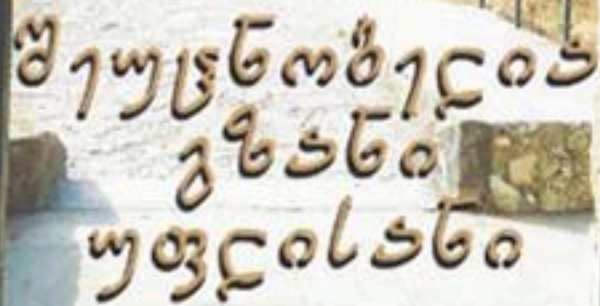 შეუცნობელია
გზანი
უფლისანი